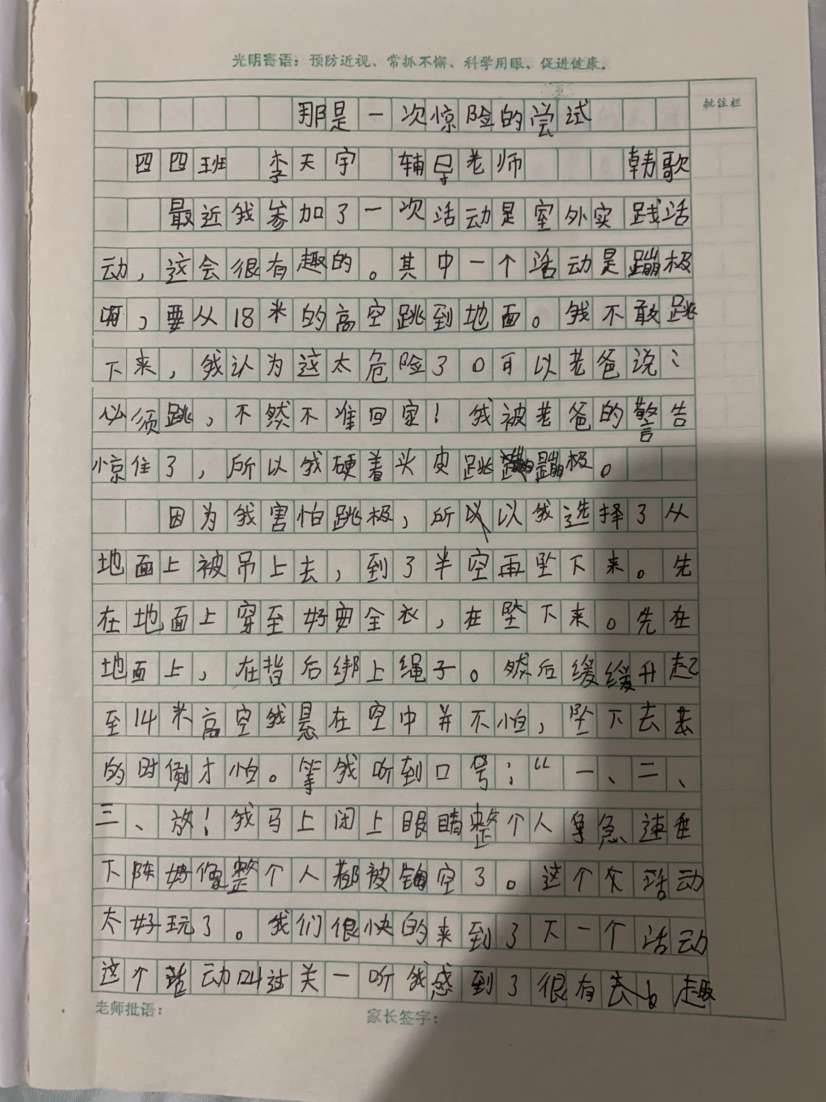 光明寄语：预防近视、常抓不懈、科学用眼、促进健康。
批注栏
那是一次惊险的尝试
四四班 李天宇 辅导老师 韩歌
最近我参加了一次活动是室外实践活
动，这会很有趣的。其中一个活动是蹦极
啊，要从18米的高空跳到地面。我不敢跳
下来，我认为这太危险了。可以老爸说：
必须跳，不然不准回家！我被老爸的警告
惊住了，所以我硬着头皮跳蹦极。
因为我害怕跳极，所以以我选择了从
地面上被吊上去，到了半空再坠下来。先
在地面上穿至好安全衣，在坠下来。先在
地面上，在背后绑上绳子。然后缓缓升起
至14米高空我悬在空中并不怕，坠下去去
的时候才怕。等我听到口号：“一、二、
三、放！我马上闭上眼睛整个人急速垂
下陈好像整个人都被掏空了。这个次活动
太好玩了。我们很快的来到了下一个活动
这个活动叫过关一听我感到了很有去趣
老师批语： 家长签字：